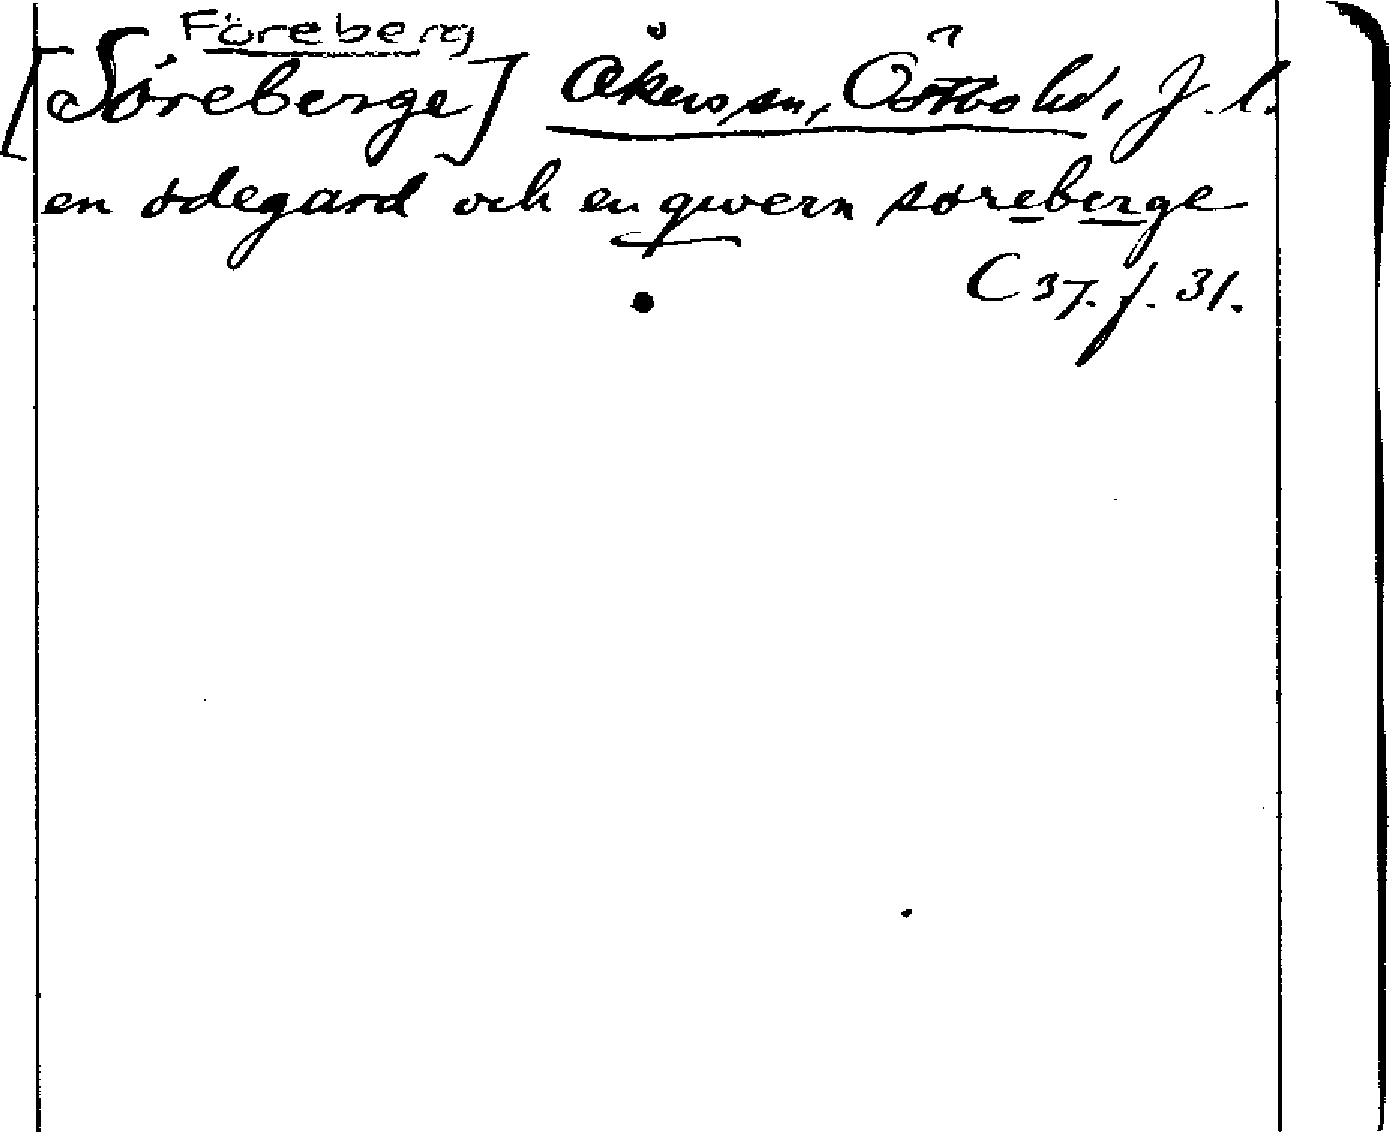 Föreberg
[Söreberge] Åkers sn, Östbo hd, J. l.
en ødegard och en qwern søreberge
C 37. f. 31.